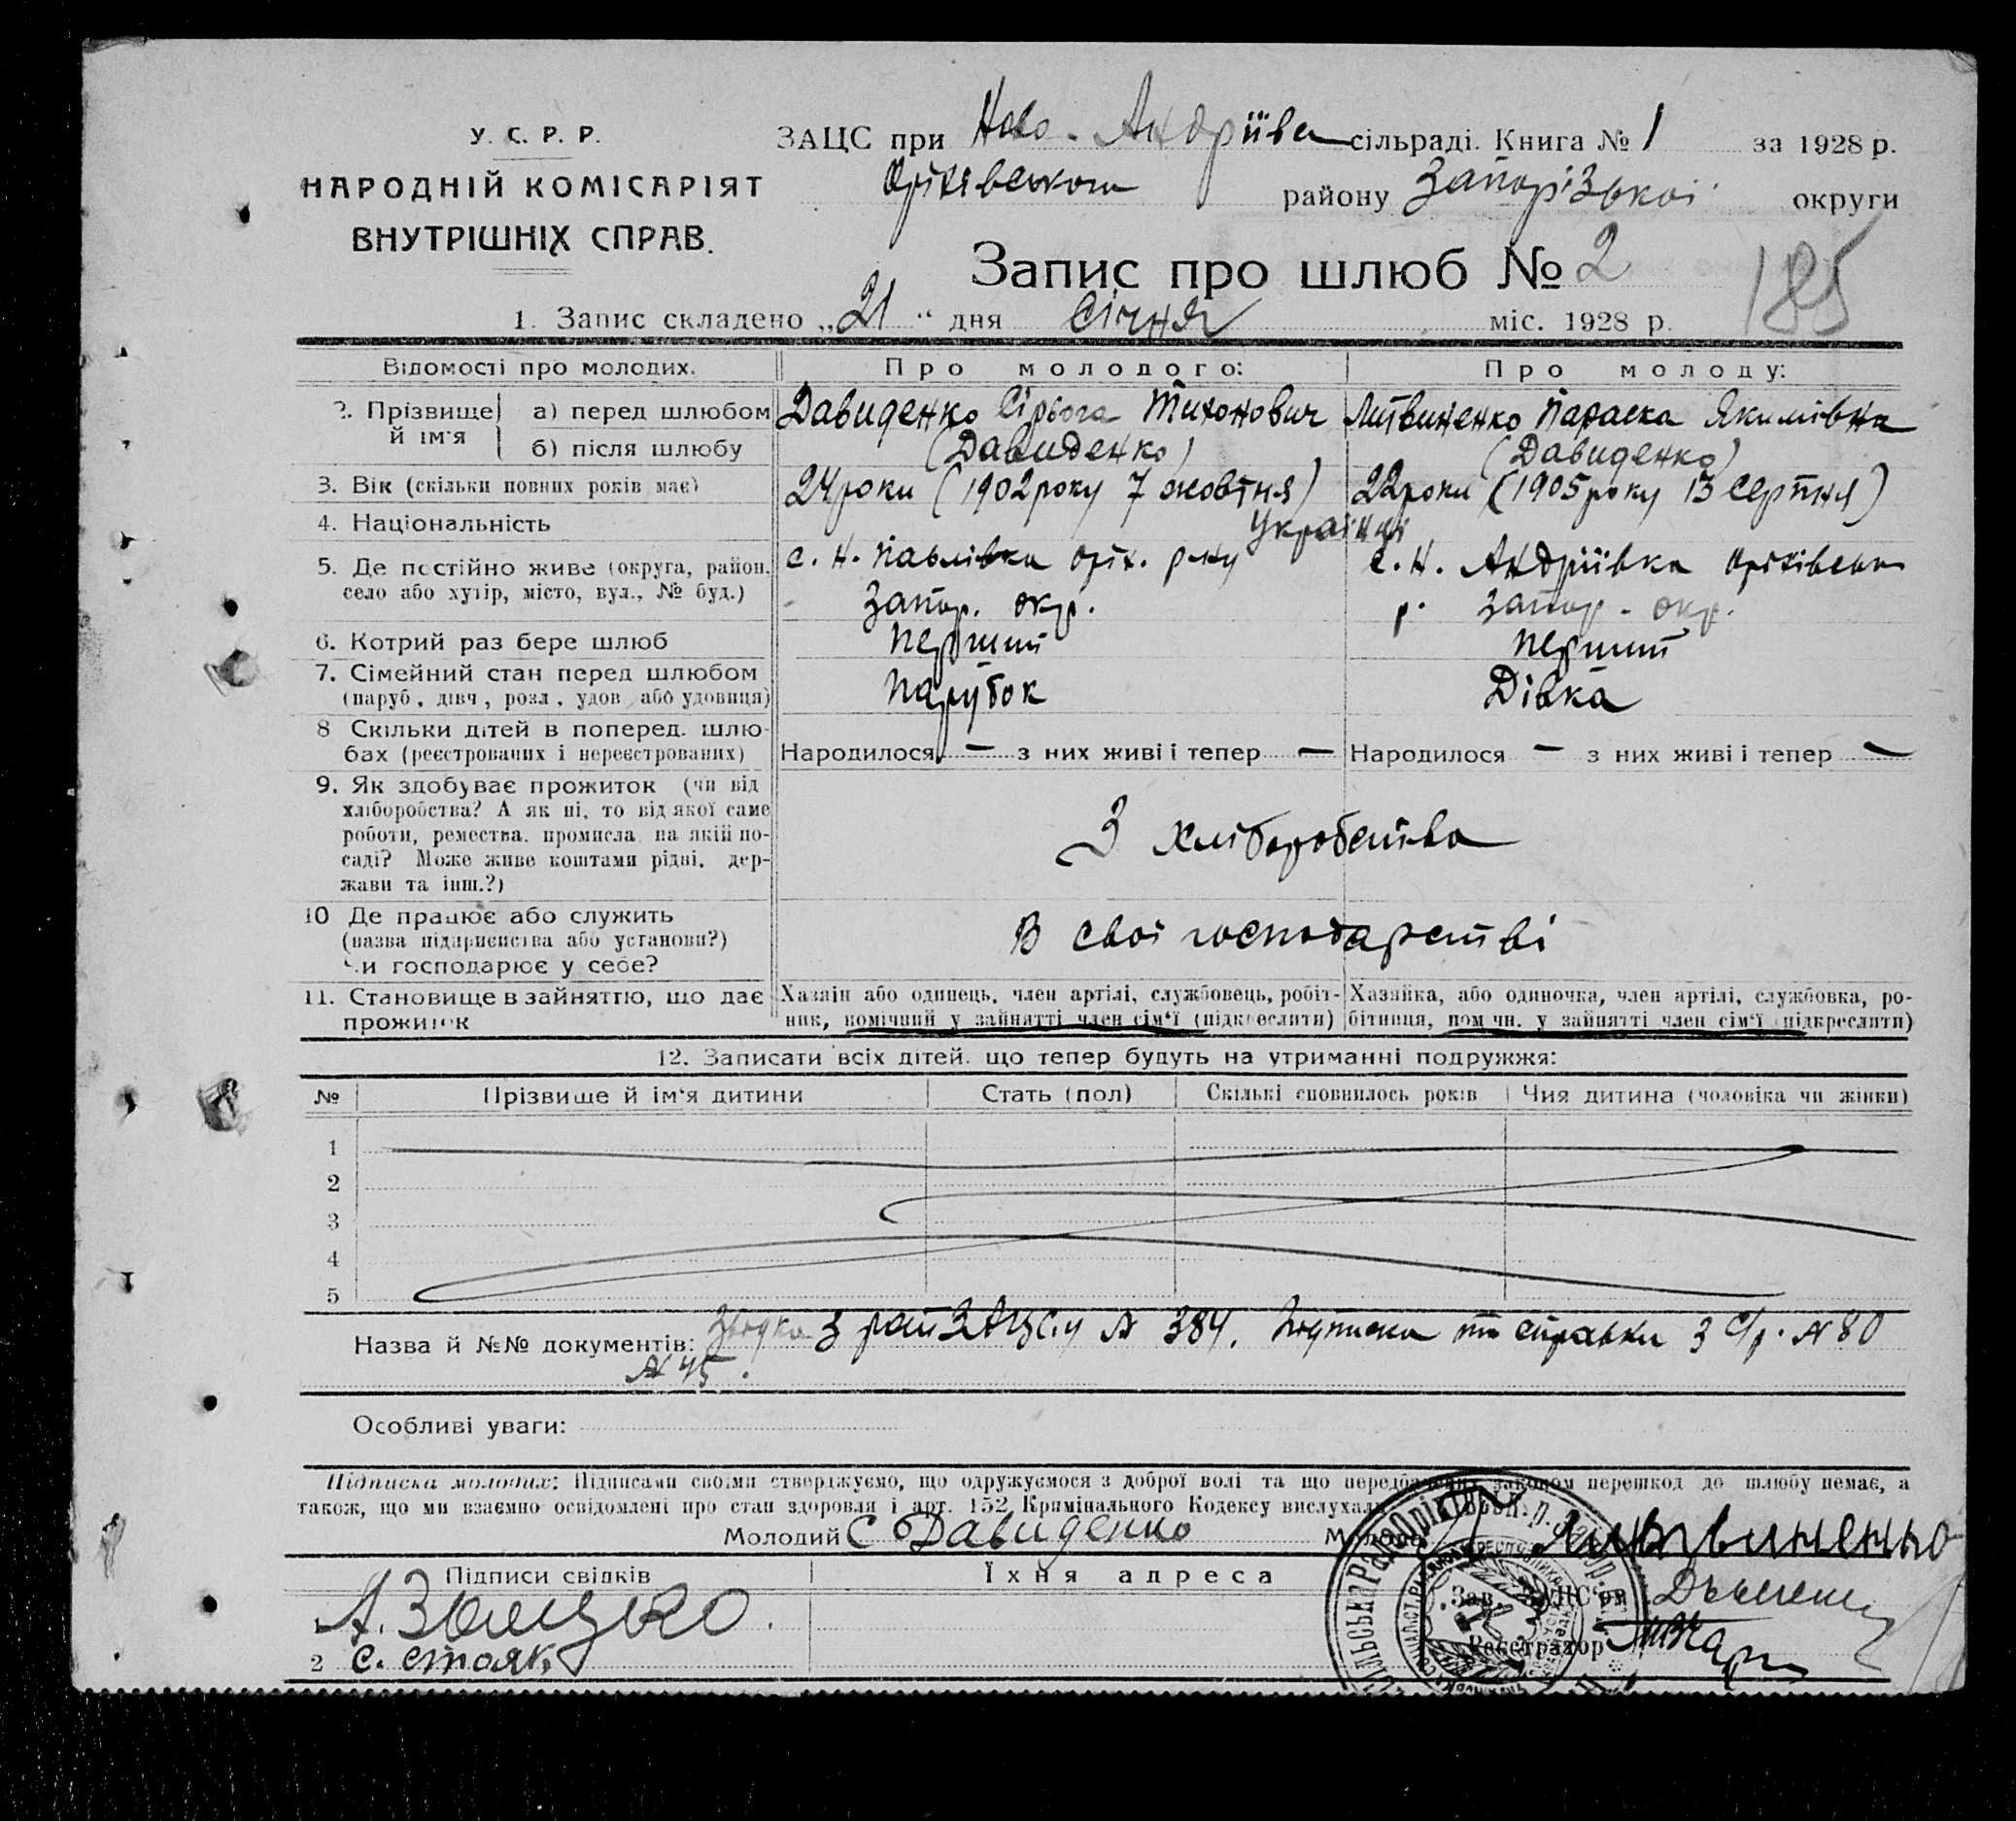 У. С. Р. Р.
НАРОДНІЙ КОМІСАРІЯТ
ВНУТРІШНІХ СПРАВ.
ЗАЦС при Ново-Андріївс сільраді. Книга № 1 за 1928 р.
Оріхівського району Запорізької округи
Запис про шлюб № 2
185
1. Запис складено „21“ дня Січня міс. 1928 р.
Відомості про молодих.
Про молодого:
Про молоду:
2. Прізвище й ім'я
а) перед шлюбом
Давиденко Сірьога Тихонович
Литвиненко Параска Якимівна
б) після шлюбу
(Давиденко)
(Давиденко)
3. Вік (скільки повних років має)
24 роки (1902 року 7 жовтня)
22 роки (1905 року 13 Серпня)
4. Національність
Українці
5. Де постійно живе (округа, район, село або хутір, місто, вул., № буд.)
с. Н. Павлівка Оріх. р-ну
Запор. окр.
с. Н. Андріївка Оріхівськ
р. Запор. окр.
6. Котрий раз бере шлюб
перший
перший
7. Сімейний стан перед шлюбом
(паруб., дівч., розл., удов. або удовиця)
Парубок
Дівка
8 Скільки дітей в поперед. шлю-
бах (реєстрованих і нереєстрованих)
Народилося — з них живі і тепер —
Народилося — з них живі і тепер —
9. Як здобуває прожиток (чи від
хліборобства? А як ні, то від якої саме
роботи, ремества, промисла, на якій по-
саді? Може живе коштами рідні, дер-
жави та інш.?)
З хліборобства
10 Де працює або служить
(назва підприємства або установи?)
Чи господарює у себе?
В своі господарстві
11. Становище в зайняттю, що дає
прожиток
Хазяїн або одинець, член артілі, службовець, робіт-
ник, помічний у зайнятті член сім'ї (підкреслити)
Хазяйка, або одиночка, член артілі, службовка, ро-
бітниця, помічн. у зайнятті член сім'ї (підкреслити)
12. Записати всіх дітей, що тепер будуть на утриманні подружжя:
№
Прізвище й ім'я дитини
Стать (пол)
Скількі сповнилось років
Чия дитина (чоловіка чи жінки)
1
2
3
4
5
Назва й №№ документів: з рай ЗАЦСу № 384. Підписка та справки з С/р. № 80
№ 45.
Особливі уваги:
Підписка молодих: Підписами своїми стверджуємо, що одружуємося з доброї волі та що передбачених законом перешкод до шлюбу немає, а
також, що ми взаємно освідомлені про стан здоровля і арт. 152 Кримінального Кодексу вислухали.
Молодий С Давиденко
Молода Литвиненко
Підписи свідків
Їхня адреса
Зав. ЗАЦС'ом
2 С. Стояк
Реєстратор